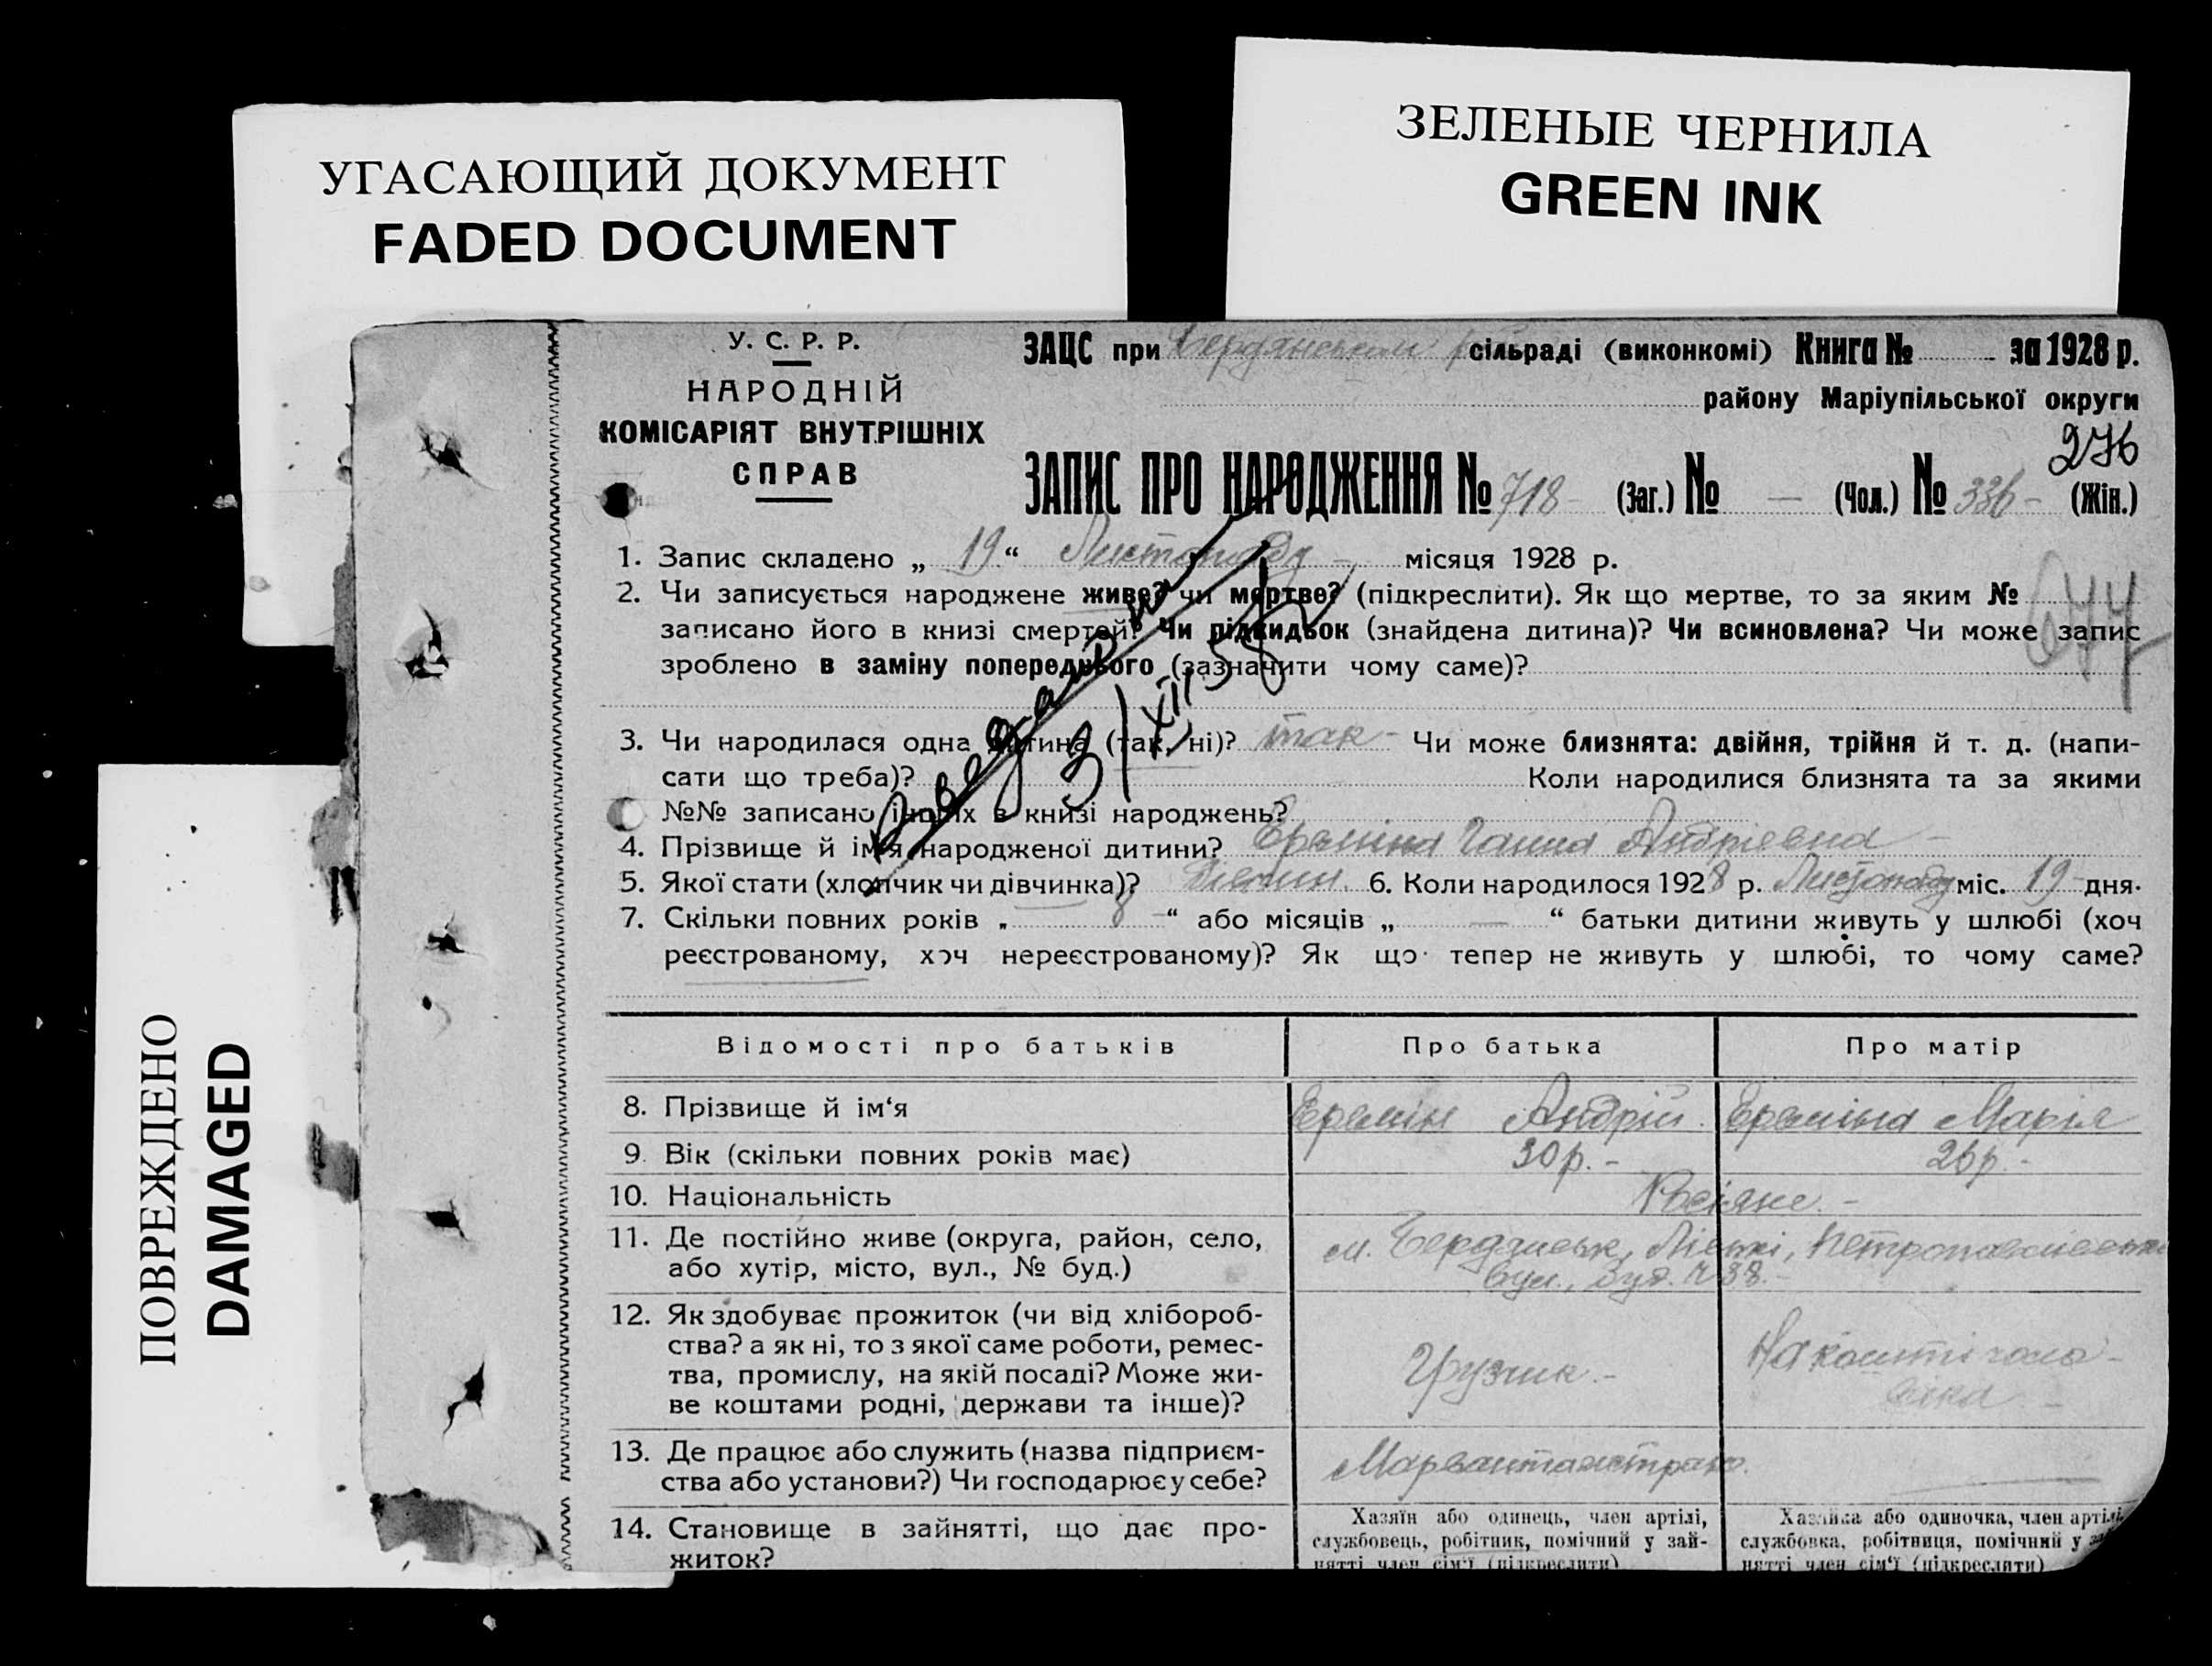 УГАСАЮЩИЙ ДОКУМЕНТ
FADED DOCUMENT
ЗЕЛЕНЫЕ ЧЕРНИЛА
GREEN INK
ПОВРЕЖДЕНО
DAMAGED
У. С. Р. Р.
НАРОДНІЙ
КОМІСАРІЯТ ВНУТРІШНІХ
СПРАВ
ЗАЦС при Бердянськім сільраді (виконкомі) Книга № за 1928 р.
району Маріупільської округи
276
ЗАПИС ПРО НАРОДЖЕННЯ № 718 - (Заг.) № — (Чол.) № 336 - (Жін.)
1. Запис складено „ 19 “ Листопаду - місяця 1928 р.
2. Чи записується народжене живе? чи мертве? (підкреслити). Як що мертве, то за яким №
записано його в книзі смертей? Чи підкидьок (знайдена дитина)? Чи всиновлена? Чи може запис
зроблено в заміну попереднього (зазначити чому саме)?
677
31/XII 58
3. Чи народилася одна дитина (так, ні)? так - Чи може близнята: двійня, трійня й т. д. (напи-
сати що треба)? Коли народилися близнята та за якими
№№ записано інших в книзі народжень?
4. Прізвище й ім'я народженої дитини? Ереміна Ганна Андріевна -
5. Якої стати (хлопчик чи дівчинка)? 6. Коли народилося 1928 р. Листопаду міс. 19 дня.
7. Скільки повних років „ 8 - “ або місяців „ — “ батьки дитини живуть у шлюбі (хоч
реєстрованому, хоч нереєстрованому)? Як що тепер не живуть у шлюбі, то чому саме?
Відомості про батьків Про батька Про матір
8. Прізвище й ім‘я Еремін Андрій. Ереміна Марія
9. Вік (скільки повних років має) 30 р. - 26 р. -
10. Національність Росіяне. -
11. Де постійно живе (округа, район, село, м. Бердянськ, Ліски, Петропавлівська
або хутір, місто, вул., № буд.) вул., буд. № 38. -
12. Як здобуває прожиток (чи від хлібороб-
ства? а як ні, то з якої саме роботи, ремес-
тва, промислу, на якій посаді? Може жи-
ве коштами родні, держави та інше)?
Грузчик. -
На кошті чоло-
віка. -
13. Де працює або служить (назва підприєм-
ства або установи?) Чи господарює у себе?
14. Становище в зайнятті, що дає про-
житок?
Хазяїн або одинець, член артілі,
службовець, робітник, помічний у зай-
нятті член сім‘ї (підкреслити)
Хазяйка або одиночка, член артілі,
службовка, робітниця, помічний у зай-
нятті член сім‘ї (підкреслити)